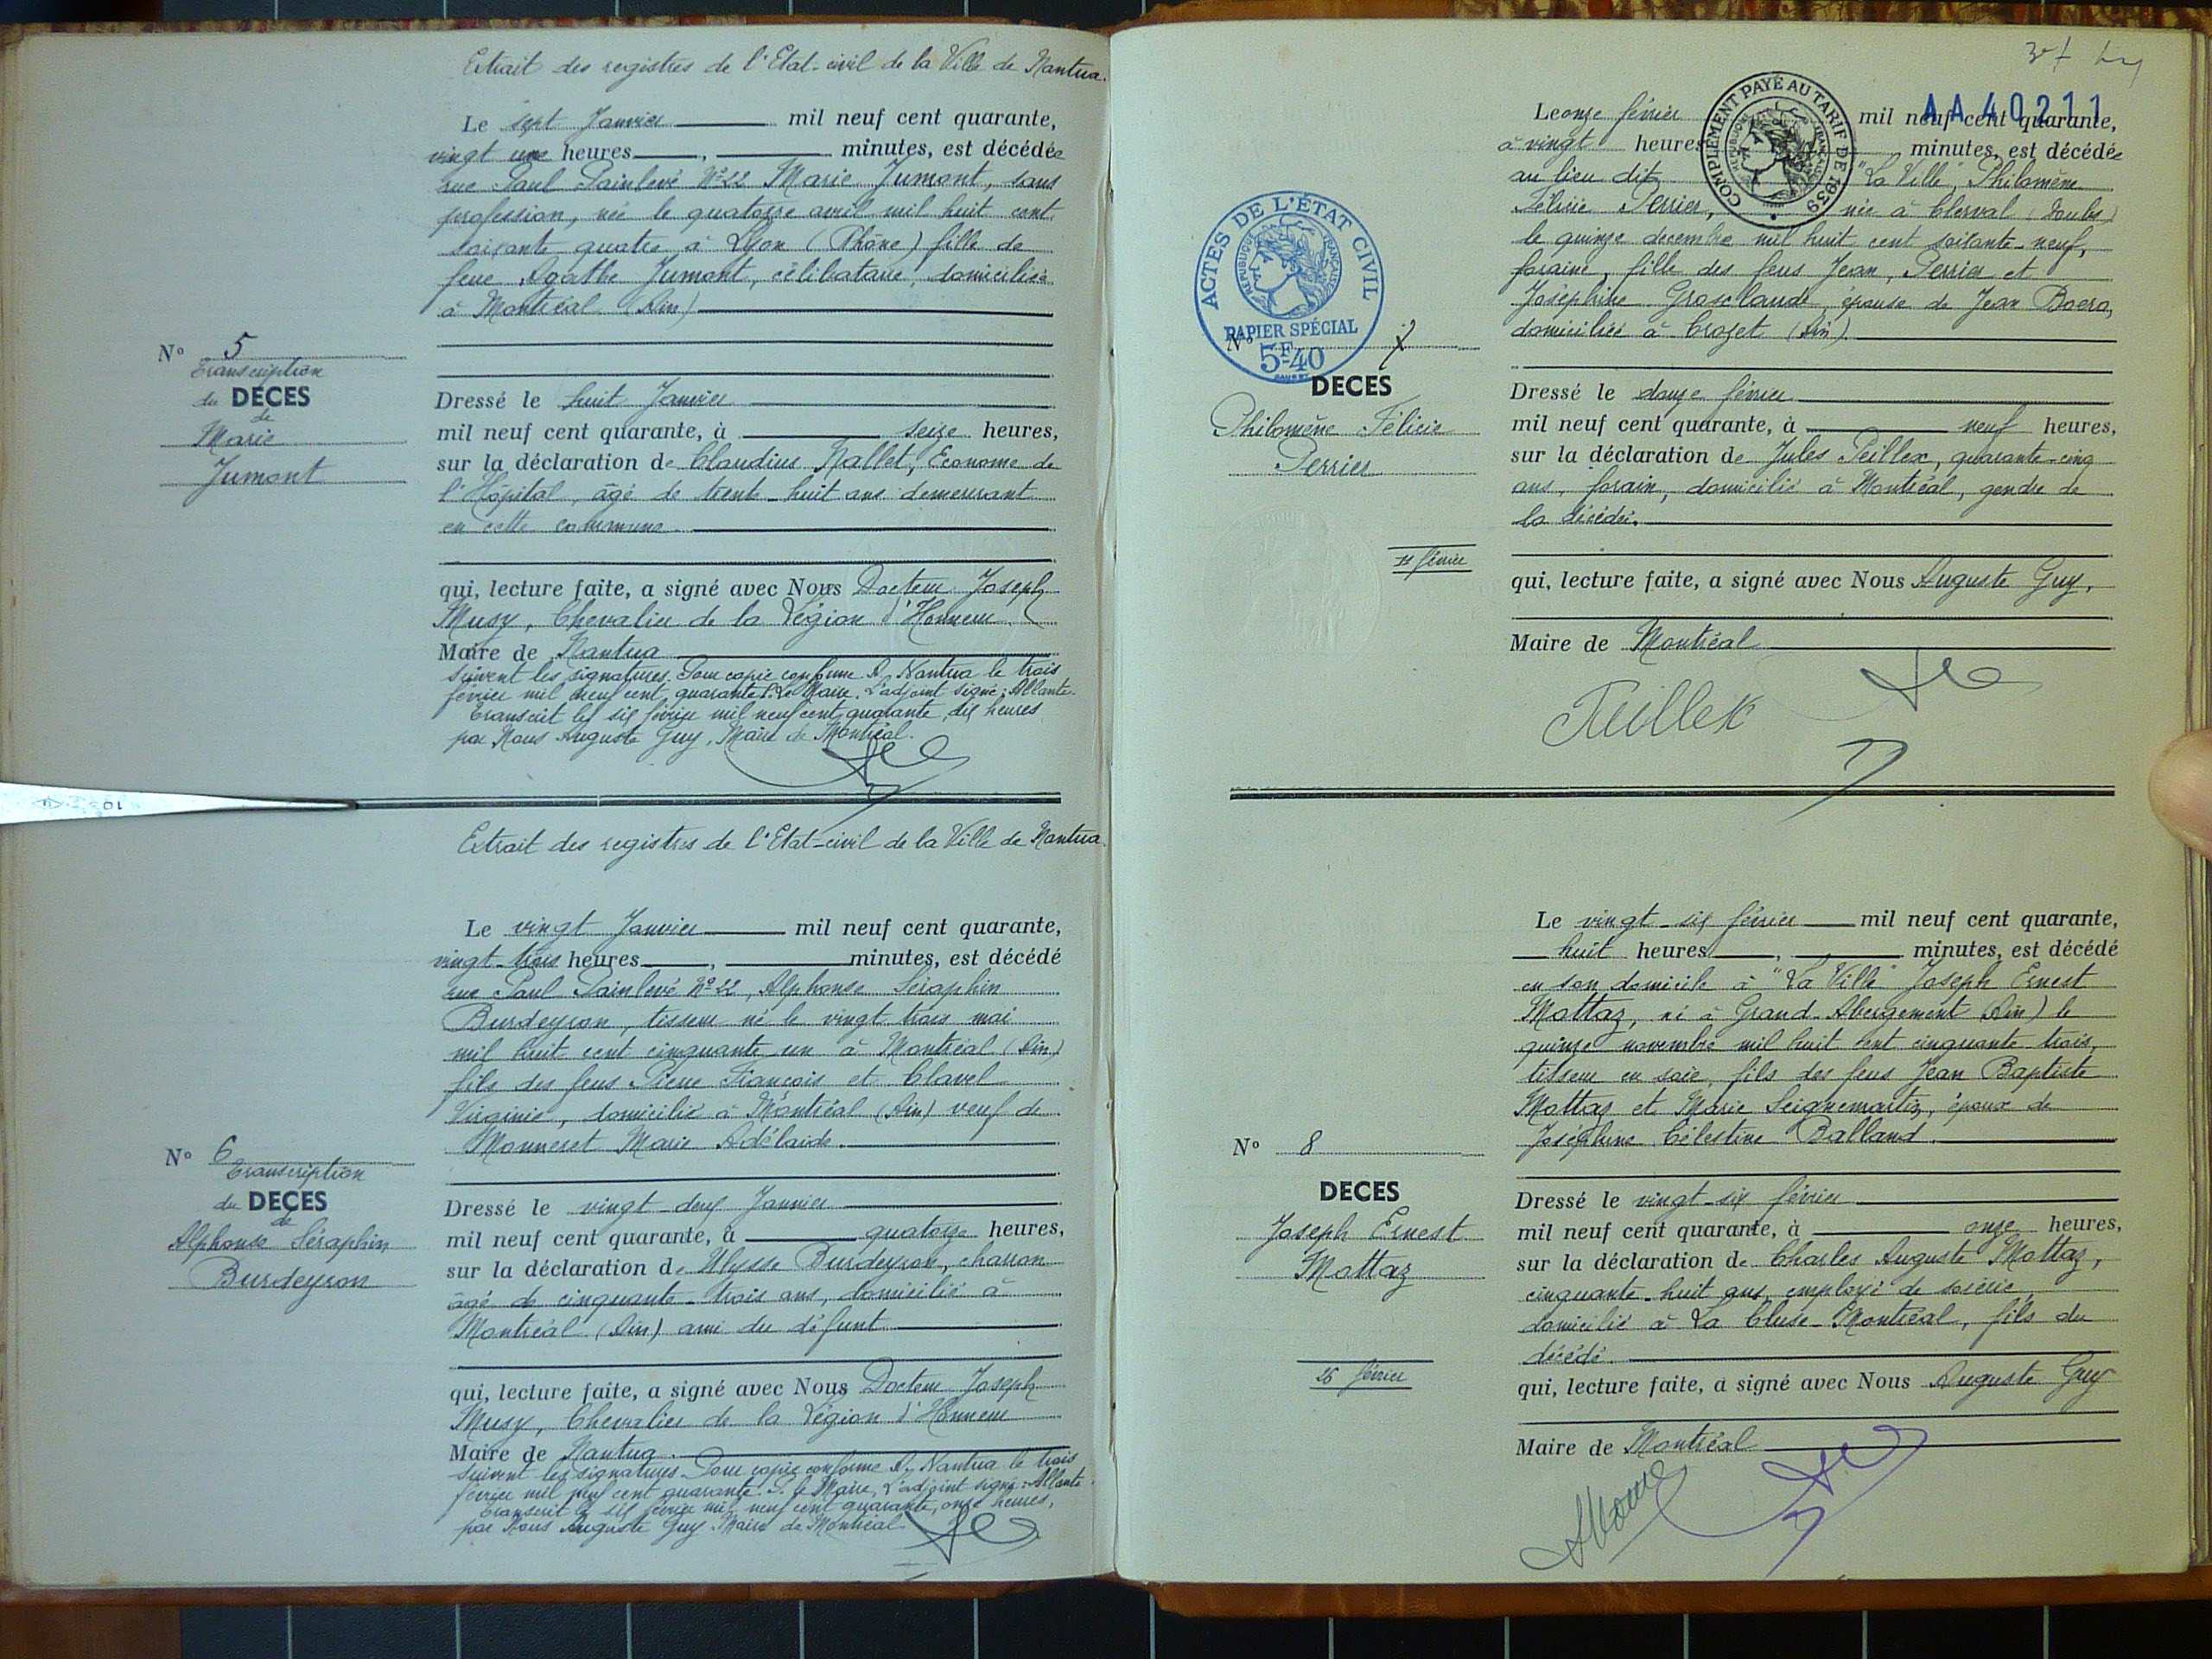 Extrait des registres de l'Etat-civil de la Ville de Nantua.
Le sept Janvier mil neuf cent quarante,
vingt une heures, minutes, est décédée
rue Paul Painlevé N° 22 Marie Jumont, sans
profession, née le quatorze avril mil huit cent
soixante quatre à Lyon (Rhône) fille de
feue Agathe Jumont, célibataire, domiciliée
à Montréal (Ain)
N° 5
Transcription
du DECES
de
Marie
Jumont
Dressé le huit Janvier
mil neuf cent quarante, à seize heures,
sur la déclaration de Claudius Nallet, Econome de
l'Hôpital, âgé de trente-huit ans demeurant
en cette commune.
qui, lecture faite, a signé avec Nous Docteur Joseph
Musy, Chevalier de la Légion d'Honneur
Maire de Nantua
suivent les signatures. Pour copie conforme A Nantua le trois
février mil neuf cent quarante P. Le Maire, L'adjoint signé: Allante.
Transcrit le six février mil neuf cent quarante, dix heures
par Nous Auguste Guy, Maire de Montréal.
Extrait des registres de l'Etat-civil de la Ville de Nantua.
Le vingt Janvier mil neuf cent quarante,
vingt-trois heures, minutes, est décédé
rue Paul Painlevé N° 22, Alphonse Séraphin
Burdeyron, tisseur né le vingt trois mai
mil huit cent cinquante un à Montréal (Ain)
fils des feus Pierre François et Clavel
Virginie, domicilié à Montréal (Ain) veuf de
Monneret Marie Adélaïde.
N° 6
Transcription
du DECES
de
Alphonse Séraphin
Burdeyron
Dressé le vingt-deux Janvier
mil neuf cent quarante, à quatorze heures,
sur la déclaration de Ulysse Burdeyron, charron
âgé de cinquante-trois ans, domicilié à
Montréal (Ain) ami du défunt
qui, lecture faite, a signé avec Nous Docteur Joseph
Musy, Chevalier de la Légion d'Honneur
Maire de Nantua.
suivent les signatures. Pour copie conforme A Nantua le trois
février mil neuf cent quarante. P. le Maire, L'adjoint signé: Allante
Transcrit le six février mil neuf cent quarante, onze heures,
par Nous Auguste Guy Maire de Montréal
AA 40211
COMPLEMENT PAYÉ AU TARIF DE 1939
Le onze février mil neuf cent quarante,
à vingt heures minutes, est décédée
au lieu dit "La Ville", Philomène
Félicie Perrier, née à Clerval (Doubs)
le quinze decembre mil huit cent soixante-neuf,
foraine, fille des feus Jean, Perrier et
Joséphine Grosclaude, épouse de Jean Boero,
domiciliée à Crozet (Ain).
ACTES DE L'ÉTAT CIVIL
REPUBLIQUE FRANÇAISE
PAPIER SPÉCIAL
5F40
N° 7
DECES
Philomène Félicie
Perrier
11 février
Dressé le douze février
mil neuf cent quarante, à neuf heures,
sur la déclaration de Jules Peillex, quarante-cinq
ans, forain, domicilié à Montréal, gendre de
la décédée.
qui, lecture faite, a signé avec Nous Auguste Guy,
Maire de Montréal
Peillex
Le vingt-six février mil neuf cent quarante,
huit heures, minutes, est décédé
en son domicile à "La Ville" Joseph Ernest
Mottaz, né à Grand-Abergement (Ain) le
quinze novembre mil huit cent cinquante-trois,
tisseur en soie, fils des feus Jean Baptiste
Mottaz et Marie Seignemartin, époux de
Joséphine Célestine Balland.
N° 8
DECES
Joseph Ernest
Mottaz
26 février
Dressé le vingt-six février
mil neuf cent quarante, à onze heures,
sur la déclaration de Charles Auguste Mottaz,
cinquante-huit ans, employé de soierie,
domicilié à La Cluse-Montréal, fils du
décédé.
qui, lecture faite, a signé avec Nous Auguste Guy
Maire de Montréal